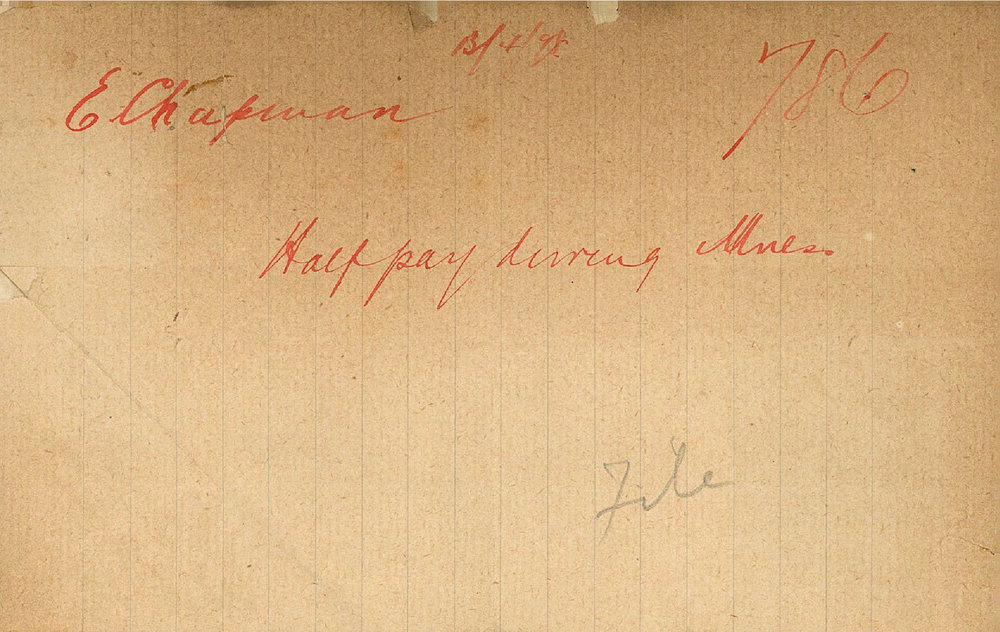 13/4/98
E Chapman 786
Half pay during Illness
File